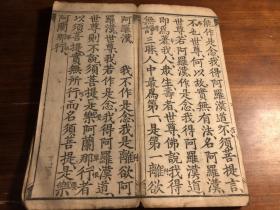 作是念我得阿羅漢道不須菩提言
不也世尊何以故實無有法名阿羅漢
世尊若阿羅漢作是念我得阿羅漢道
即為著我人衆生壽者世尊佛說我得
無諍三昧人中最為第一是第一離欲
阿羅漢 我不作是念我是離欲阿
羅漢世尊我若作是念我得阿羅漢道
世尊則不說須菩提是樂阿蘭那行者
以須菩提實無所行而名須菩提是樂
阿蘭那行